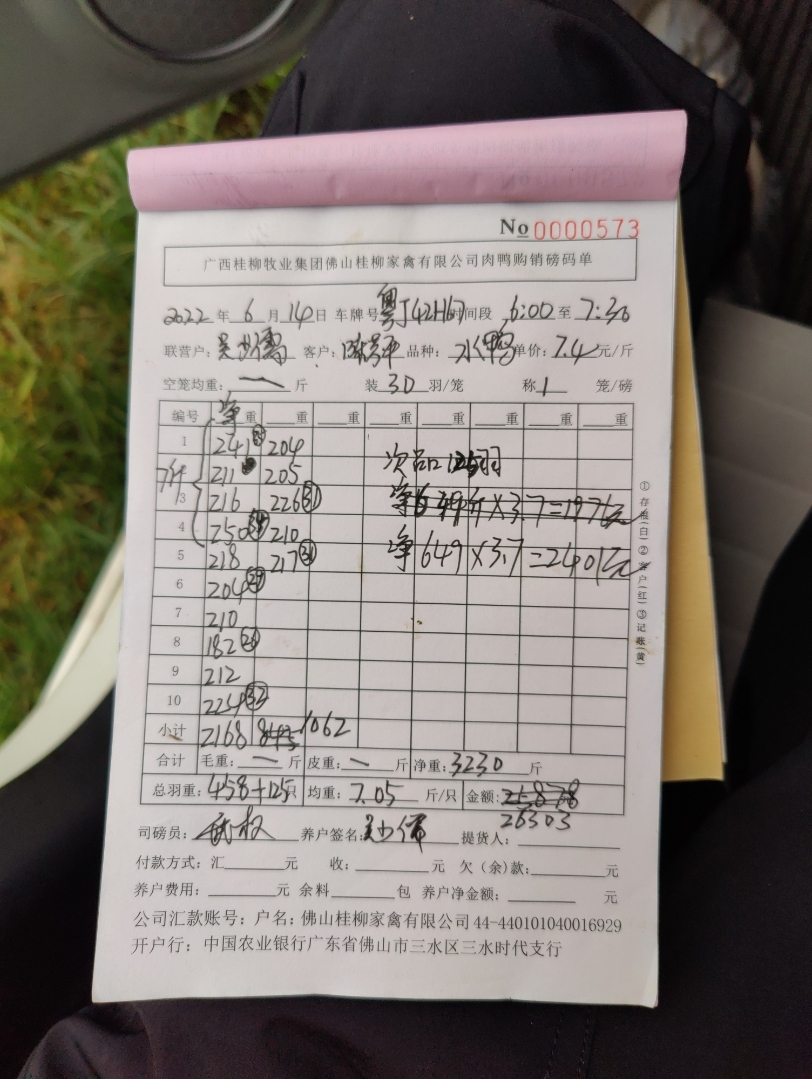 No 0000573
广西桂柳牧业集团佛山桂柳家禽有限公司肉鸭购销磅码单
2022年6月14日 车牌号粤J42H67时间段 6:00至7:30
联营户: 客户: 品种:水鸭 单价:7.4元/斤
空笼均重:一斤 装30羽/笼 称1笼/磅
编号 净重 重 重 重 重 重 重 重
1 241 204
211 205 次品125羽
3 216 226㉛
4 250 210
5 218 217㉛ 净649×3.7=2401元
6 204㉙
7 210
8 182
9 212
10 224㉜
小计 2168 1062
合计 毛重:一斤 皮重:一斤 净重:3230斤
总羽重:458+125只 均重:7.05斤/只 金额:
26303
司磅员: 养户签名: 提货人:
付款方式:汇 元 收: 元 欠(余)款: 元
养户费用: 元 余料 包 养户净金额: 元
公司汇款账号:户名:佛山桂柳家禽有限公司44-440101040016929
开户行:中国农业银行广东省佛山市三水区三水时代支行
①存根(白)②客户(红)③记账(黄)